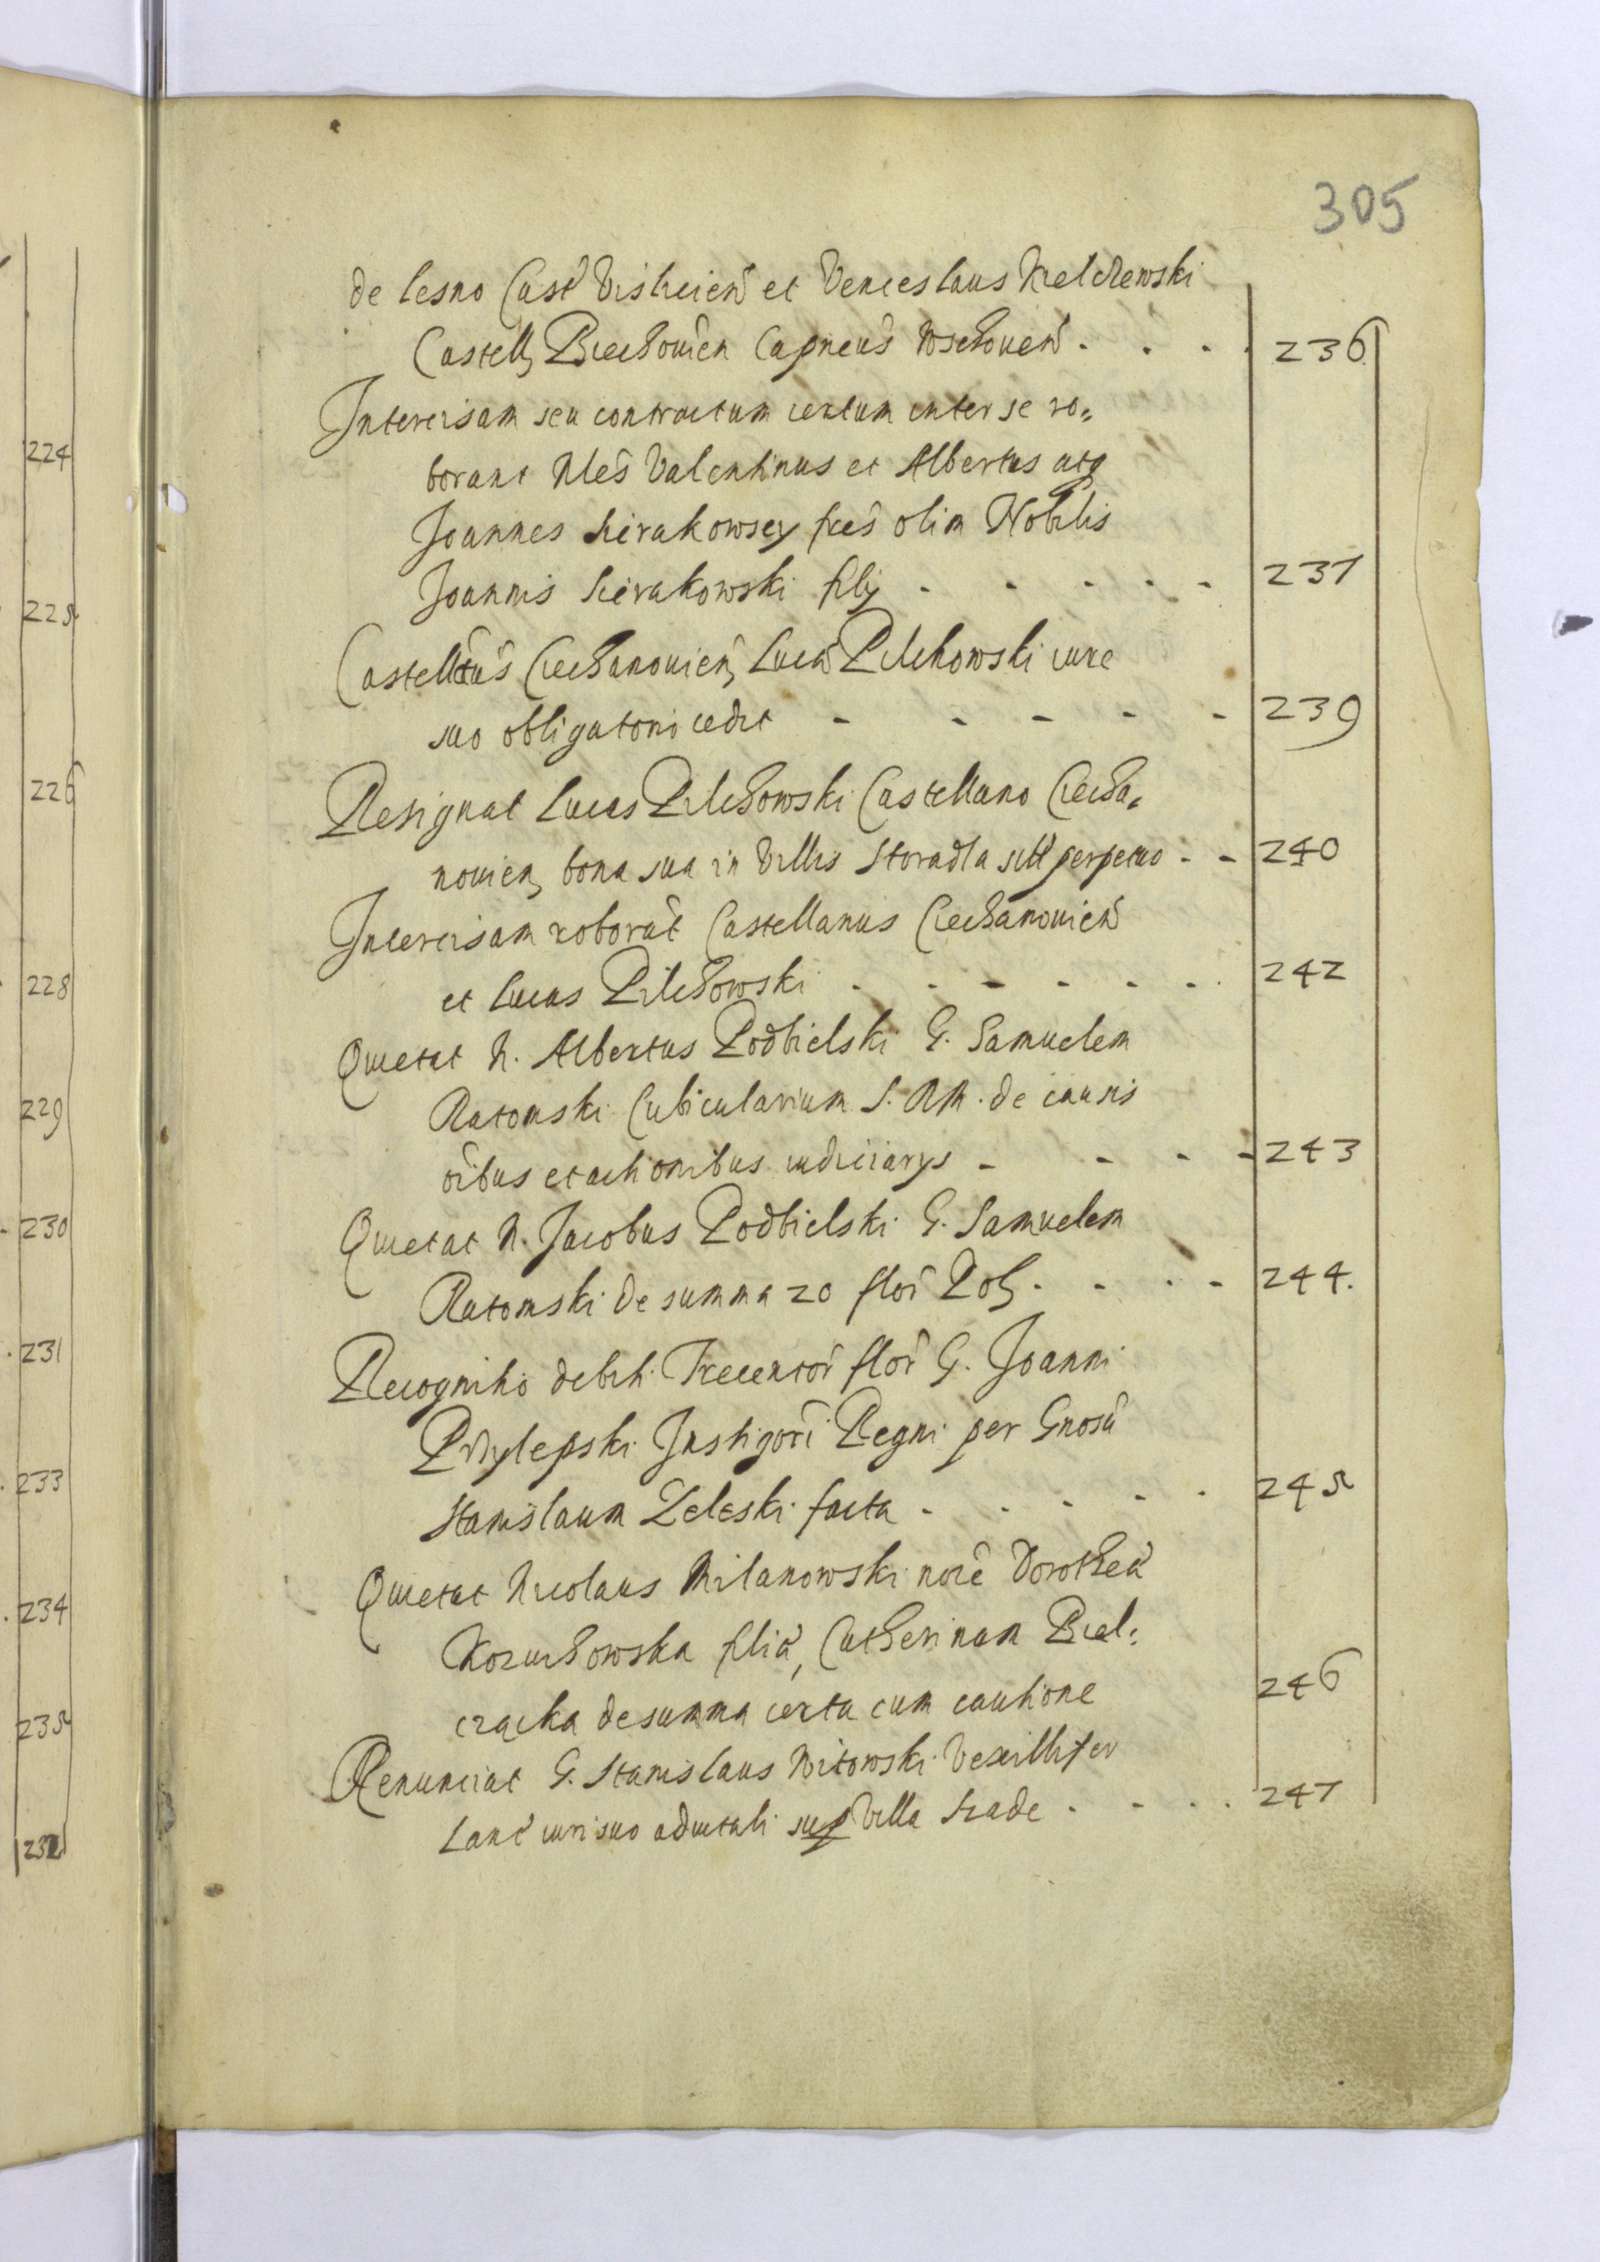 305
de Lesno Cast Vislicien et Venceslaus Kielczewski
Castell Biechovien Capneus Wschoven . . . . 236
Intercisam seu contractum certum inter se ro=
borant Nles Valentinus et Albertus atq
Joannes Sierakowscy fres olim Nobilis
Joannis Sierakowski filij - - - - - 237
Castellanus Ciechanovien Lucae Pilchowski iure
suo obligatorio cedit - - - - - 239
Resignat Lucas Pilchowski Castellano Ciecha=
novien bona sua in Villis Skoradla perpetuo - - 240
Intercisam roborat Castellanus Ciechanovien
et Lucas Pilchowski . - - - - - . 242
Quietat N. Albertus Podbielski G. Samuelem
Ratomski Cubicularium S. RM. de causis
oibus et actionibus iudiciarys - - - - 243
Quietat N. Jacobus Podbielski G. Samuelem
Ratomski de summa 20 flor Pol . - . - 244.
Recognitio debiti Trecentor flor G. Joanni
Przylepski Instigori Regni per Gnosu
Stanislaum Zeleski facta - . - - . 245
Quietat Nicolaus Milanowski noie Dorothea
Kozuchowska filia, Catherinam Biel=
czacka de summa certa cum cautione 246
Renunciat G. Stanislaus Witowski Vexillifer
Lanc iuri suo advitali sup Villa Siade . - . . 247
224
225
226
228
229
- 230
. 231
. 233
. 234
235